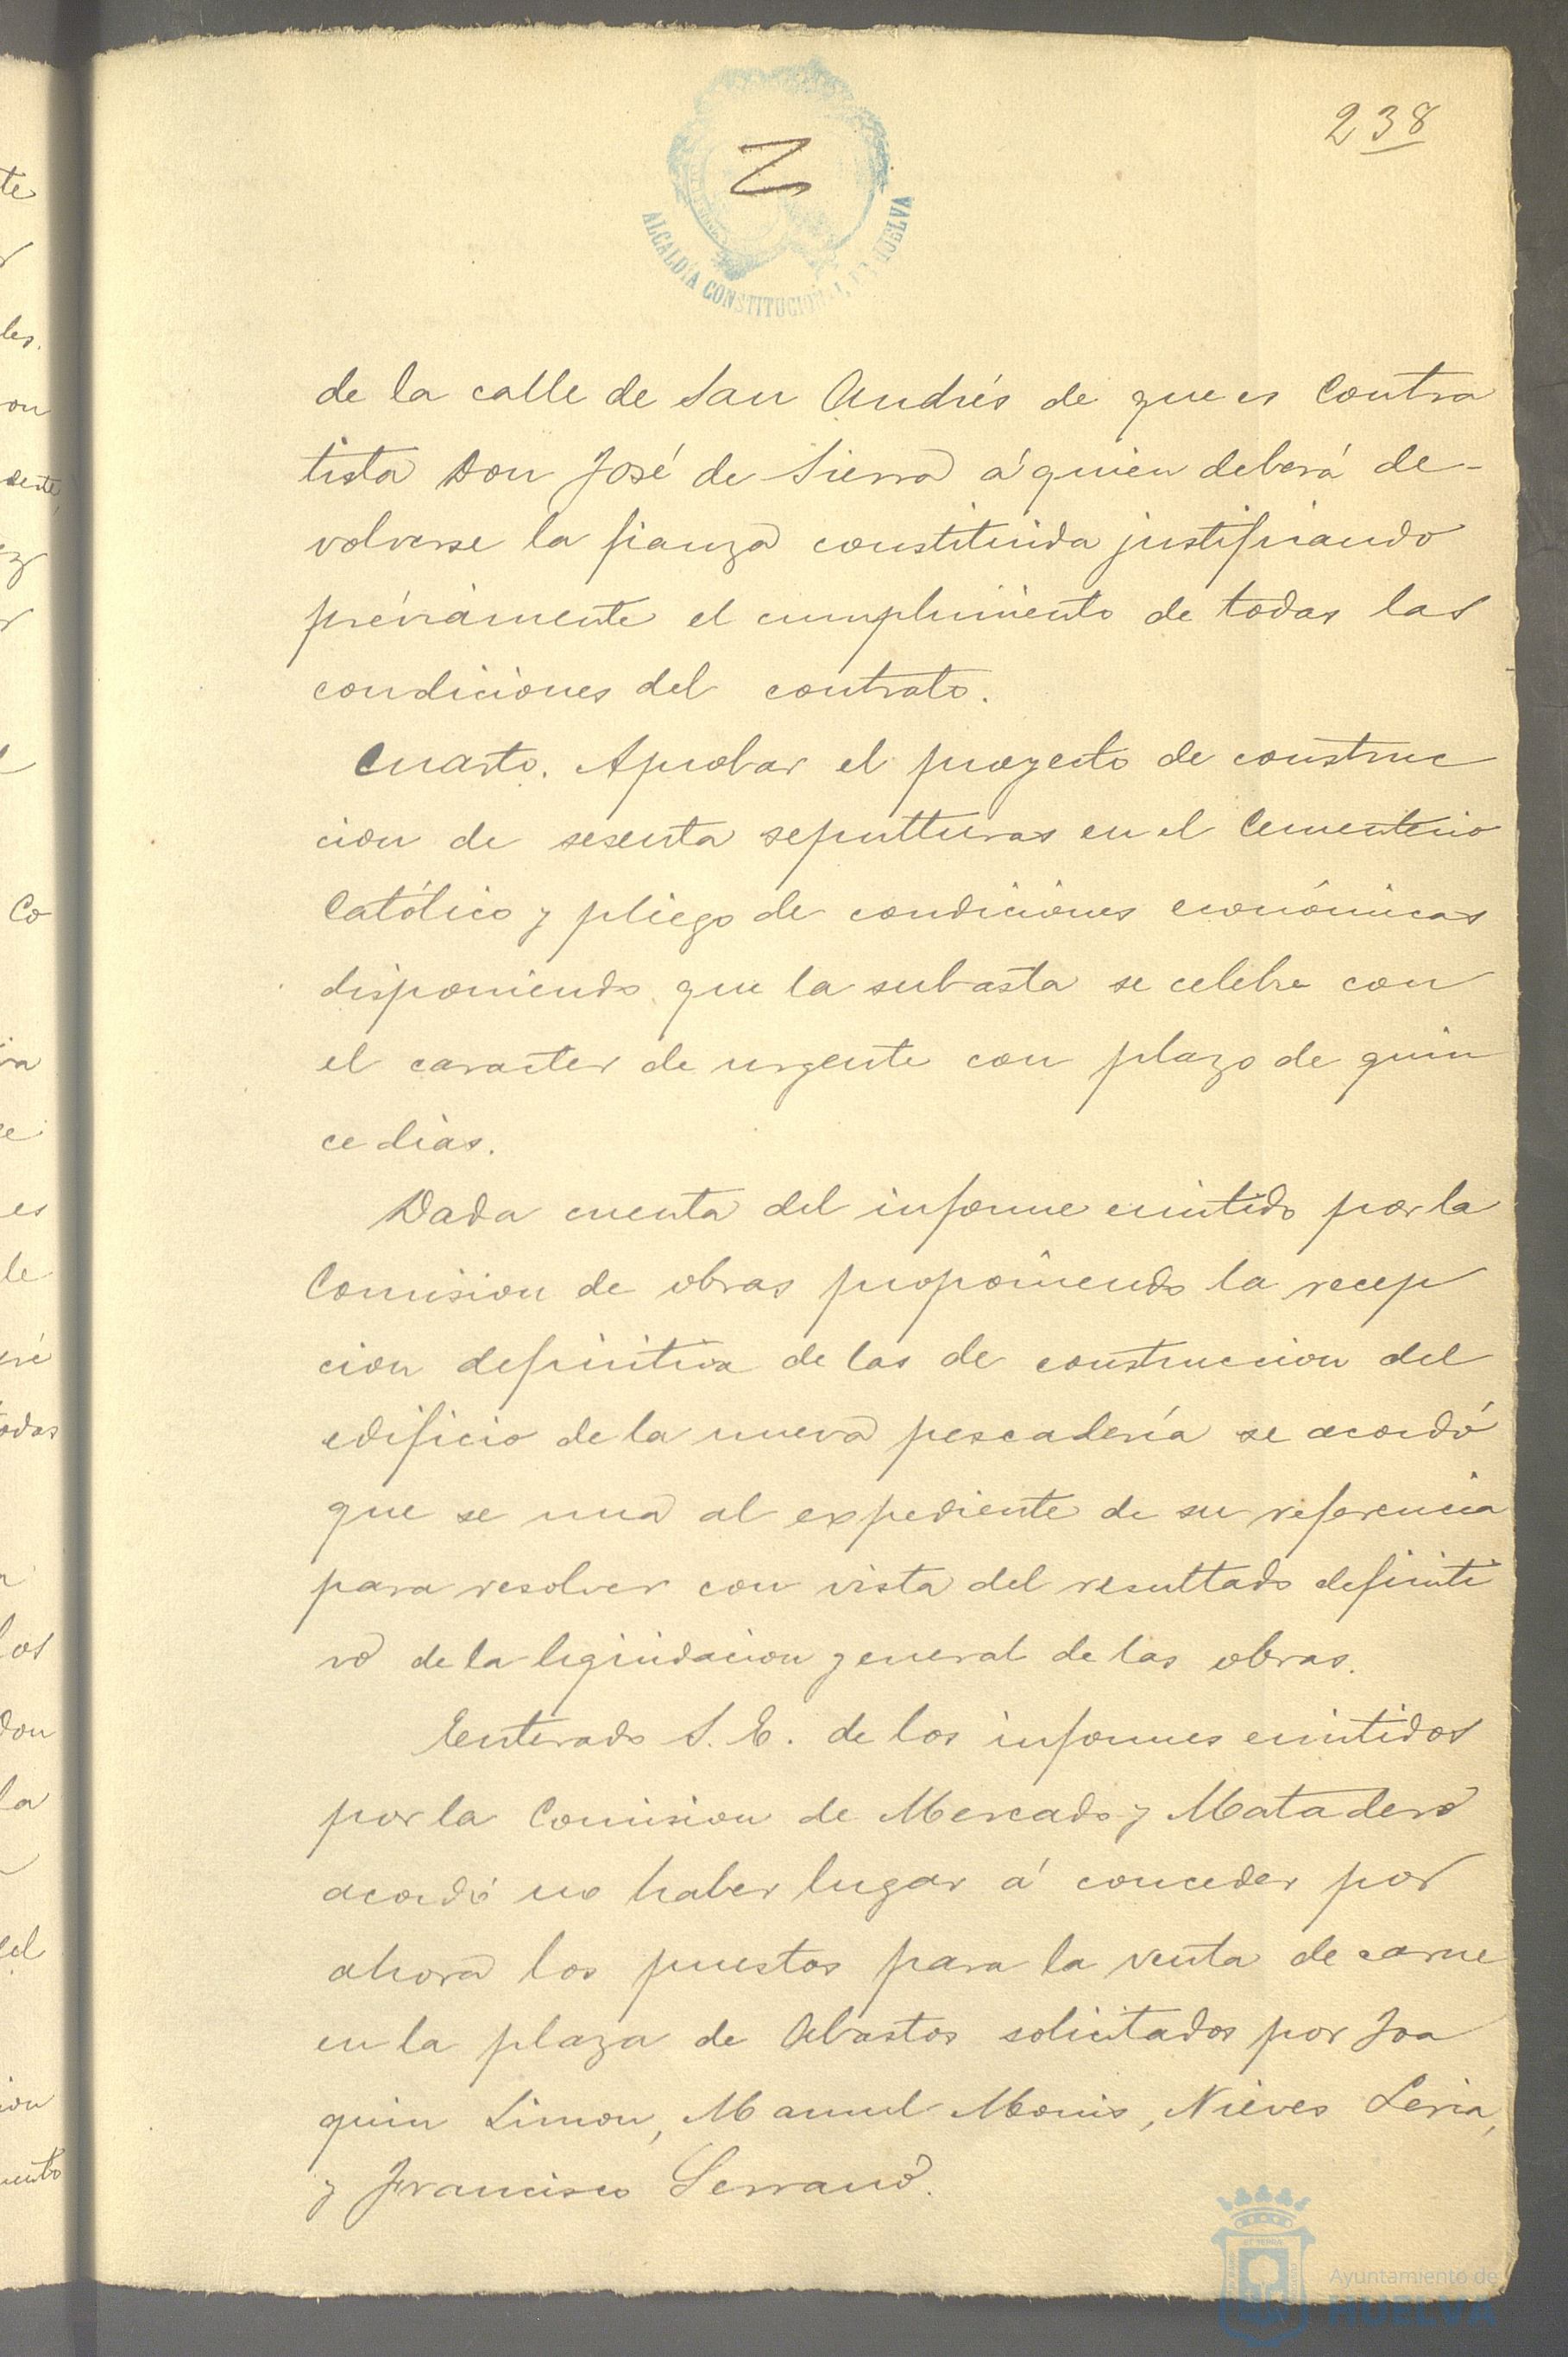 238
ALCALDÍA CONSTITUCIONAL DE HUELVA
de la calle de San Andrés de que es Contra
tista Don José de Sierra á quien deberá de-
volverse la fianza constituida justificando
préviamente el cumplimiento de todas las
condiciones del contrato.
Cuarto. Aprobar el proyecto de construc
cion de sesenta sepulturas en el Cementerio
Católico y pliego de condiciones económicas
disponiendo que la subasta se celebre con
el caracter de urgente con plazo de quin
ce dias.
Dada cuenta del informe emitido por la
Comision de obras proponiendo la recep
cion definitiva de las de construccion del
edificio de la nueva pescadería se acordó
que se una al expediente de su referencia
para resolver con vista del resultado definiti
vo de la liquidacion general de las obras.
Enterado S. E. de los informes emitidos
por la Comision de Mercado y Matadero
acordó no haber lugar á conceder por
ahora los puestos para la venta de carne
en la plaza de Abastos solicitados por Joa
quin Limon, Manuel Monis, Nieves Leria,
y Francisco Serrano.
Ayuntamiento de
HUELVA